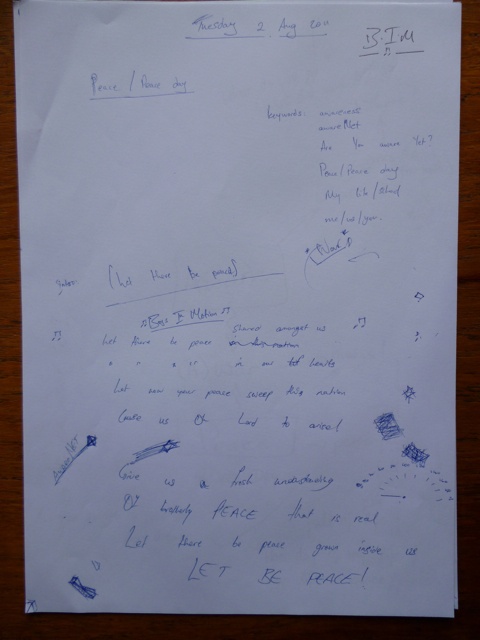 Tuesday 2 Aug 2011
B.I.M
Peace / Peace day
keywords: awareness
awareNet
Are You aware Yet?
Peace/Peace day
My life/School
me/us/you.
(Let there be peace)
Boys In Motion
Let there be peace shared amongst us
" " " " in our hearts
Let now your peace sweep this nation
Cause us O Lord to
AwareNET
Give us a fresh understanding
Of brotherly PEACE that is real
Let there be peace grown inside us
LET BE PEACE!